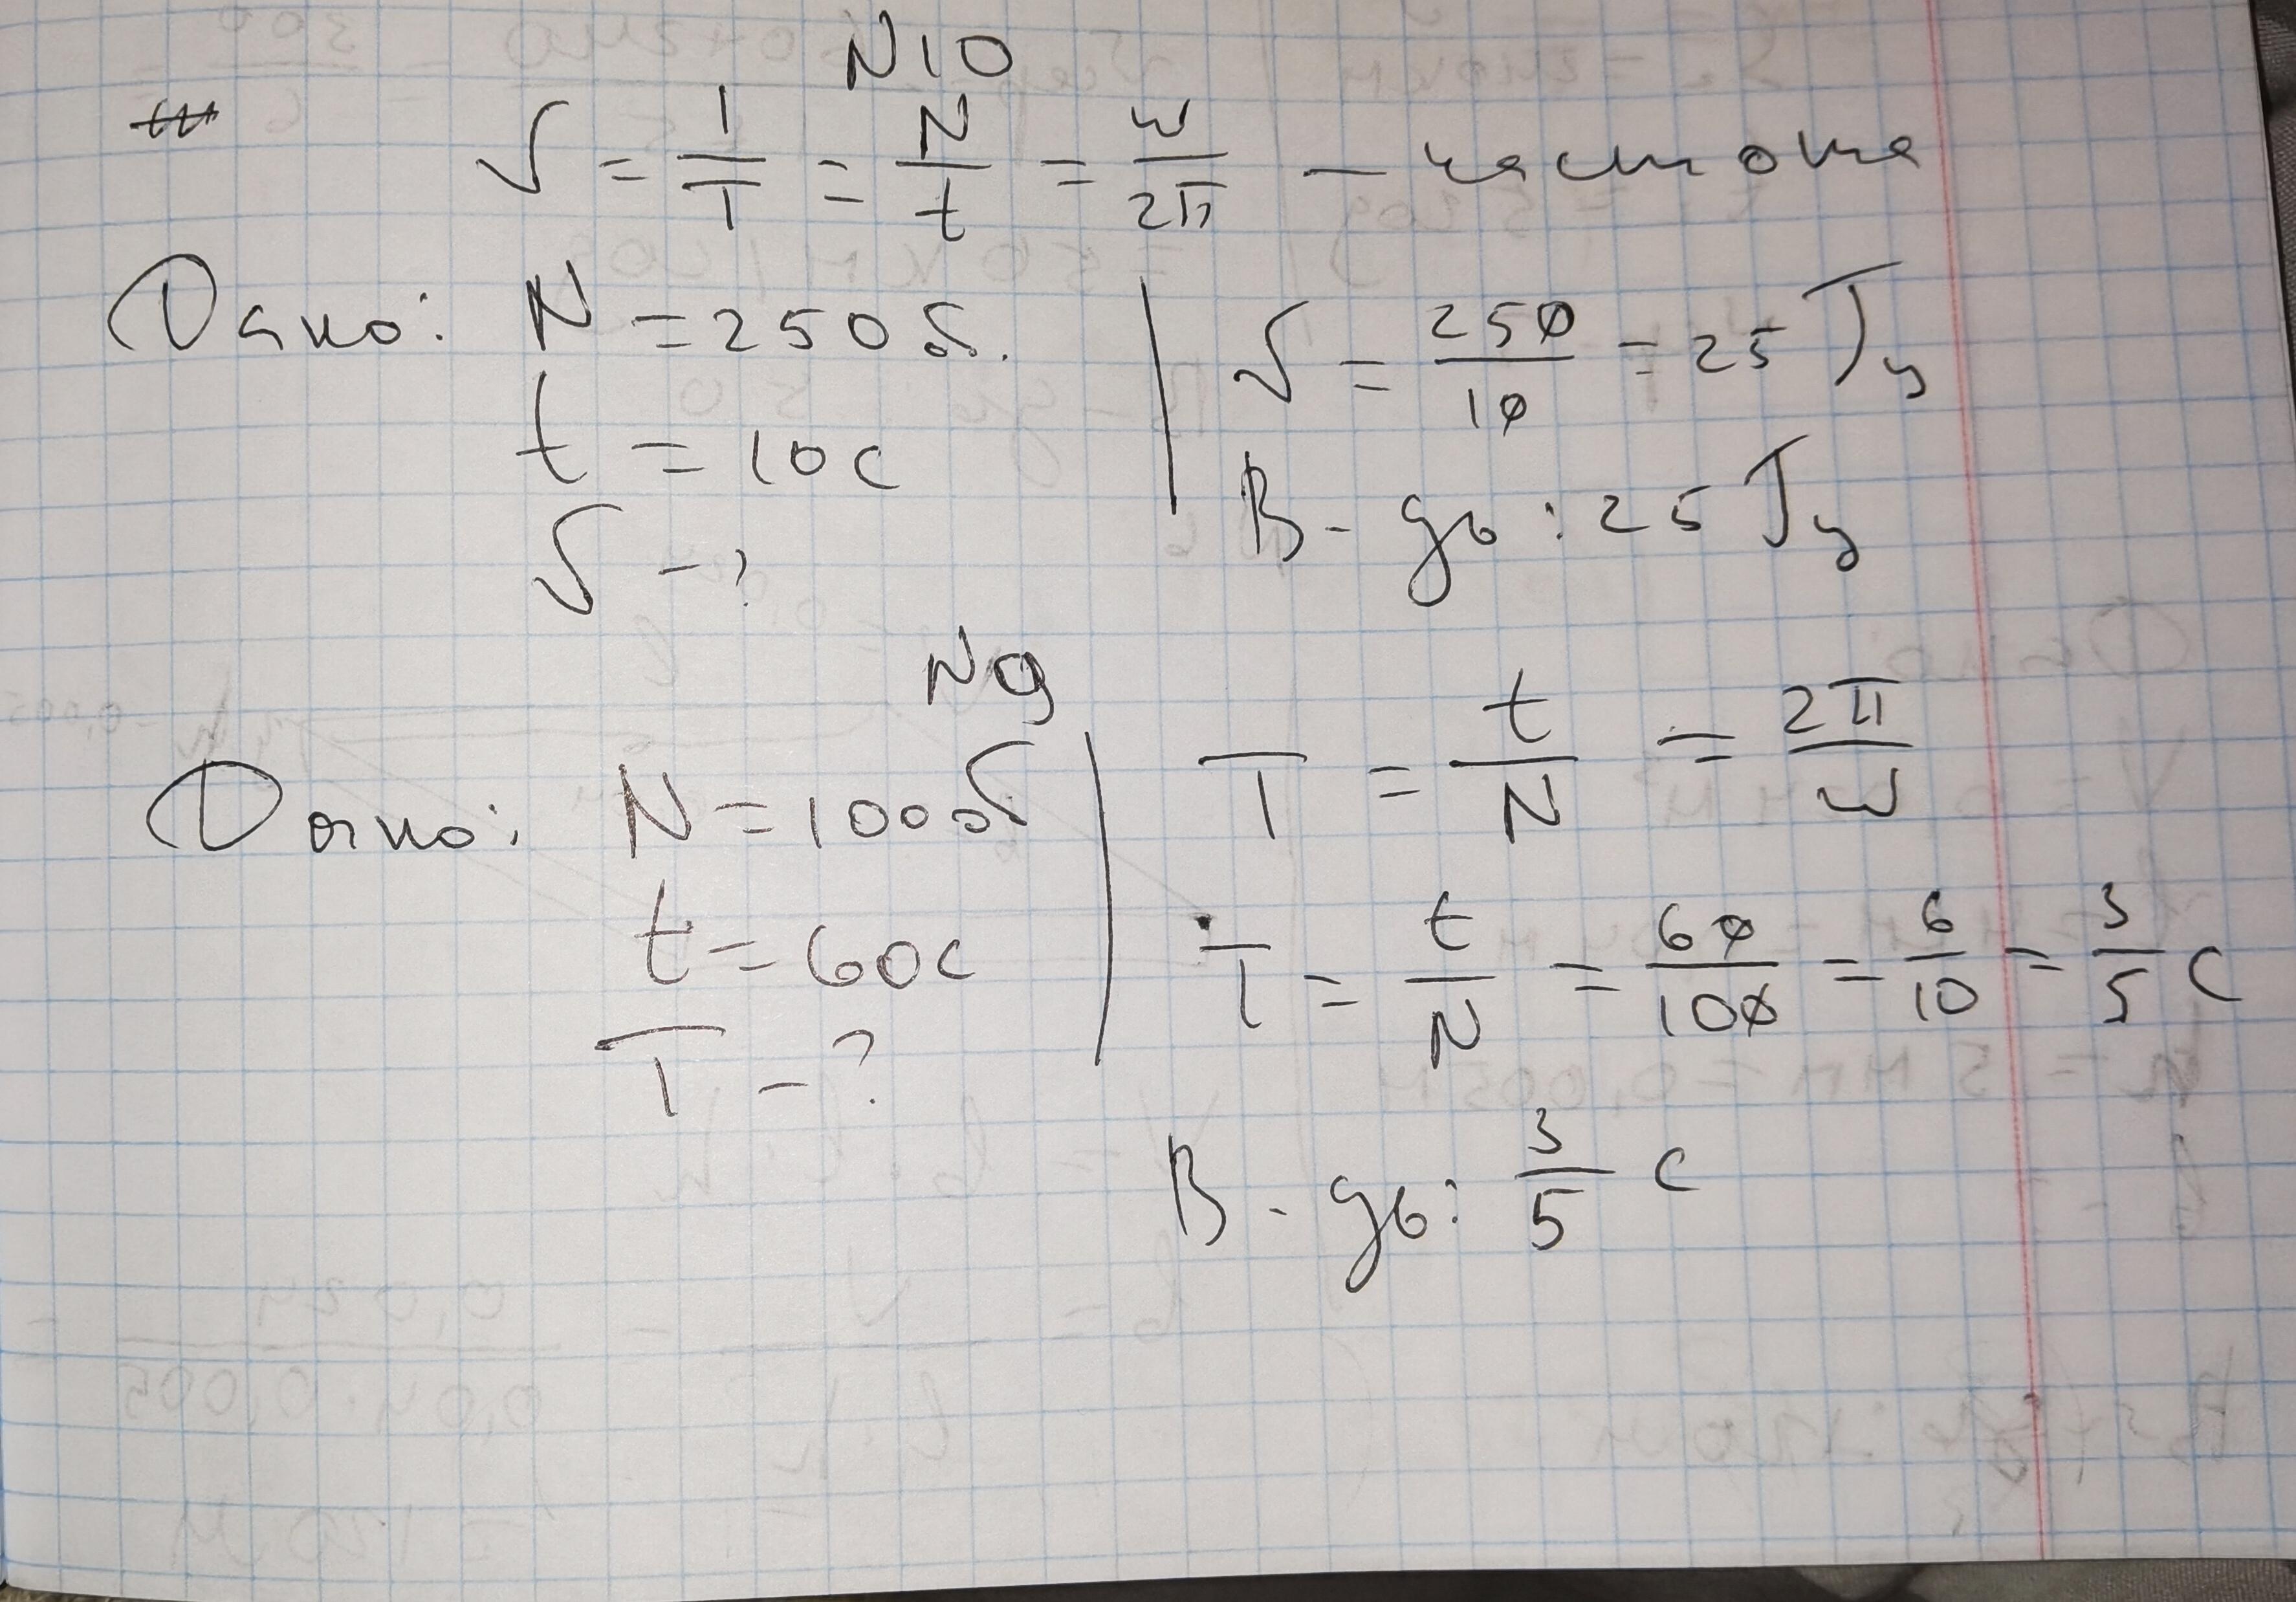 N10
√ = 1/T = N/t = ω/2π – частота
Дано: N = 250 об.
t = 10с
√ - ?
√ = 250/10 = 25 Гц
В-дь: 25 Гц
N9
Дано: N = 100 об
t = 60с
T - ?
T = t/N = 2π/ω
T = t/N = 60/100 = 6/10 = 3/5 с
В-дь: 3/5 с